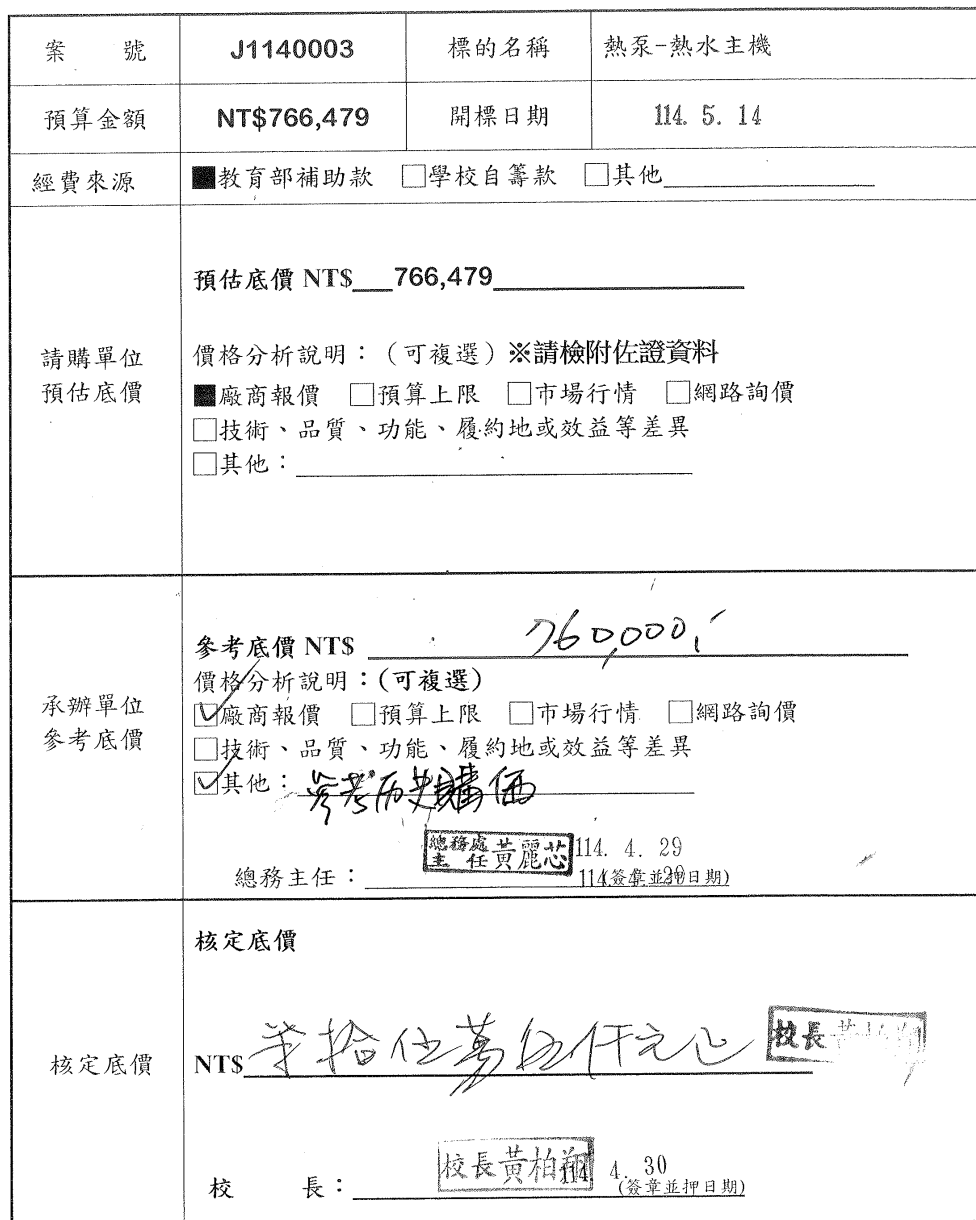 案 號 J1140003 標的名稱 熱泵-熱水主機
預算金額 NT$766,479 開標日期 114. 5. 14
經費來源 ■教育部補助款 □學校自籌款 □其他
預估底價 NT$ 766,479
請購單位
預估底價
價格分析說明：（可複選）※請檢附佐證資料
■廠商報價 □預算上限 □市場行情 □網路詢價
□技術、品質、功能、履約地或效益等差異
□其他：
參考底價 NT$ 760,000.-
承辦單位
參考底價
價格分析說明：(可複選)
☑廠商報價 □預算上限 □市場行情 □網路詢價
□技術、品質、功能、履約地或效益等差異
☑其他：參考历史購価
總務處
主任 黃麗芯 114. 4. 29
總務主任： (簽章並押日期)
核定底價
核定底價
NT$ 柒拾伍萬伍仟元正 校長黃柏翔
校 長： 校長黃柏翔 114. 4. 30
(簽章並押日期)